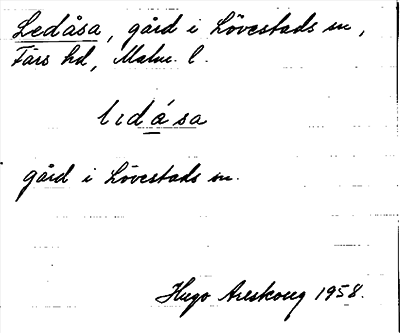 Ledåsa, gård i Lövestads sn,
Färs hd, Malm. l.
lıdása
gård i Lövestads sn.
Hugo Areskoug 1958.